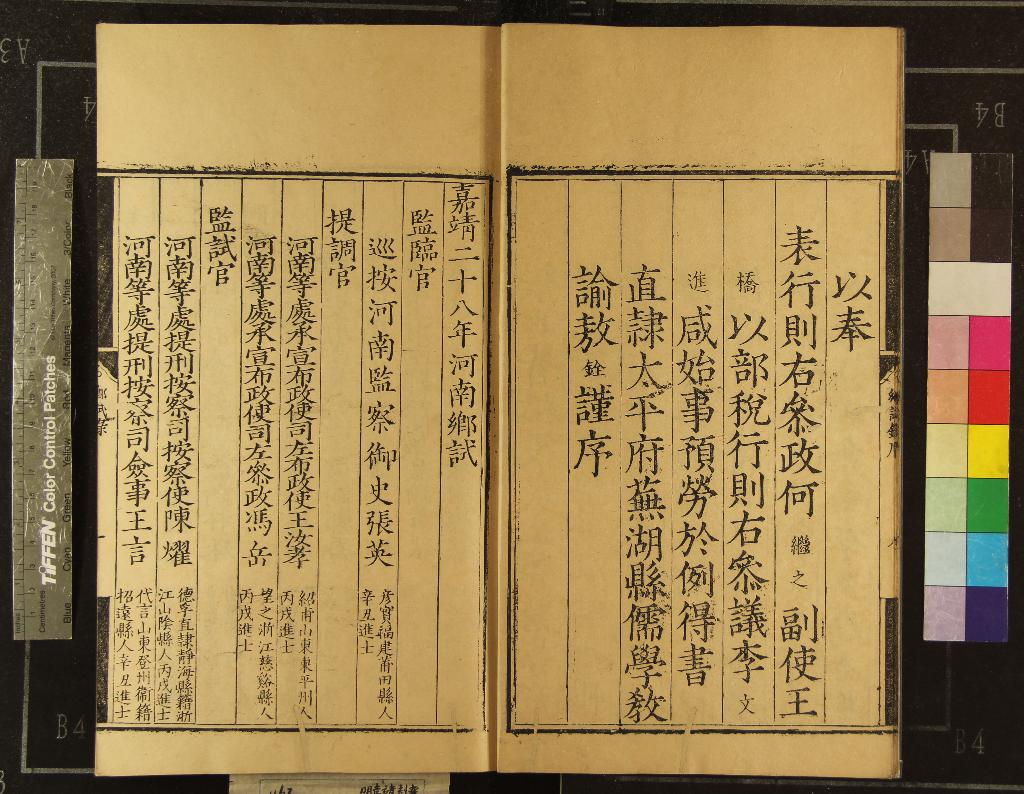 以奉
表行則右叅政何繼之副使王
橋以部稅行則右叅議李文
進咸始事預勞於例得書
直隷太平府蕪湖縣儒學教
諭敖銓謹序
嘉靖二十八年河南鄉試
監臨官
巡按河南監察御史張英 彥實福建莆田縣人辛丑進士
提調官
河南等處承宣布政使司左布政使王汝孝 紹甫山東東平州人丙戌進士
河南等處承宣布政使司左叅政馮岳 望之浙江慈谿縣人丙戌進士
監試官
河南等處提刑按察司按察使陳燿 德孚直隷靜海縣籍浙江山陰縣人丙戌進士
河南等處提刑按察司僉事王言 代言山東登州衛籍招遠縣人辛丑進士
TIFFEN Color Control Patches
Blue Cyan Green Yellow Red Magenta White 3/Color Black
Centimetres
Inches
A3
A4
B4
B4
B4